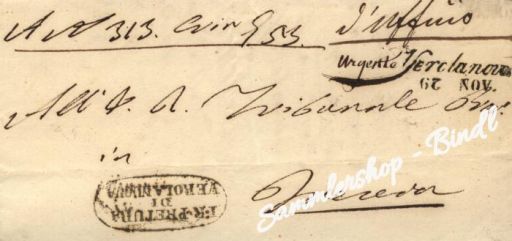 N 313. Crim 953. d'Ufficio
Urgente Verolanuov
NOV. 29
All'I. R. Tribunale Pro.
in
Brescia
I. R. PRETURA
DI
VEROLANUOVA
Sammlershop - Bindl